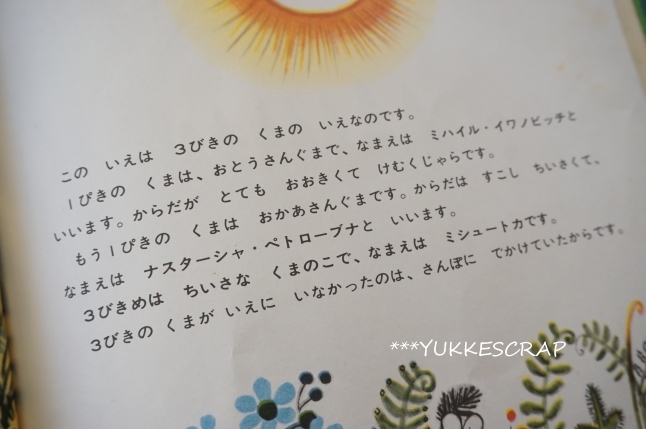 この　いえは　３びきの　くまの　いえなのです。
１ぴきの　くまは、おとうさんぐまで、なまえは　ミハイル・イワノビッチと
いいます。からだが　とても　おおきくて　けむくじゃらです。
もう１ぴきの　くまは　おかあさんぐまです。からだは　すこし　ちいさくて、
なまえは　ナスターシャ・ペトローブナと　いいます。
３びきめは　ちいさな　くまのこで、なまえは　ミシュートカです。
３びきの　くまが　いえに　いなかったのは、さんぽに　でかけていたからです。
***YUKKESCRAP